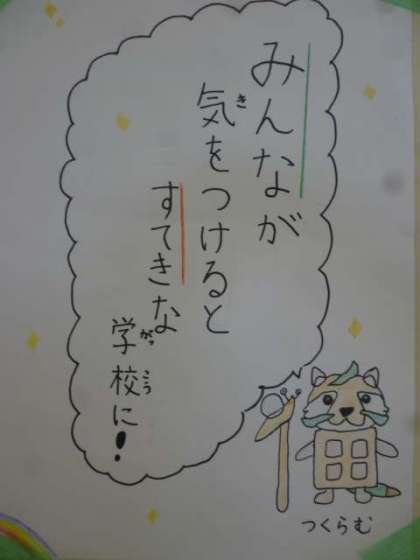 みんなが
気をつけると
すてきな
学校に！
つくらむ